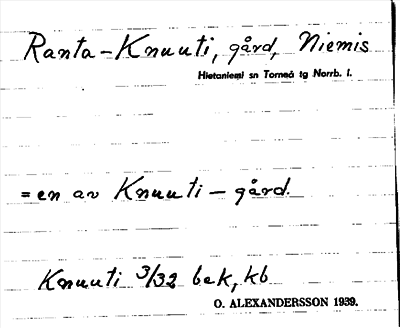 Ranta-Knuuti, gård, Niemis
Hietaniemi sn Torneå tg Norrb. l.
= en av Knuuti-gård.
Knuuti 3/32 bek, kb
O. ALEXANDERSSON 1939.